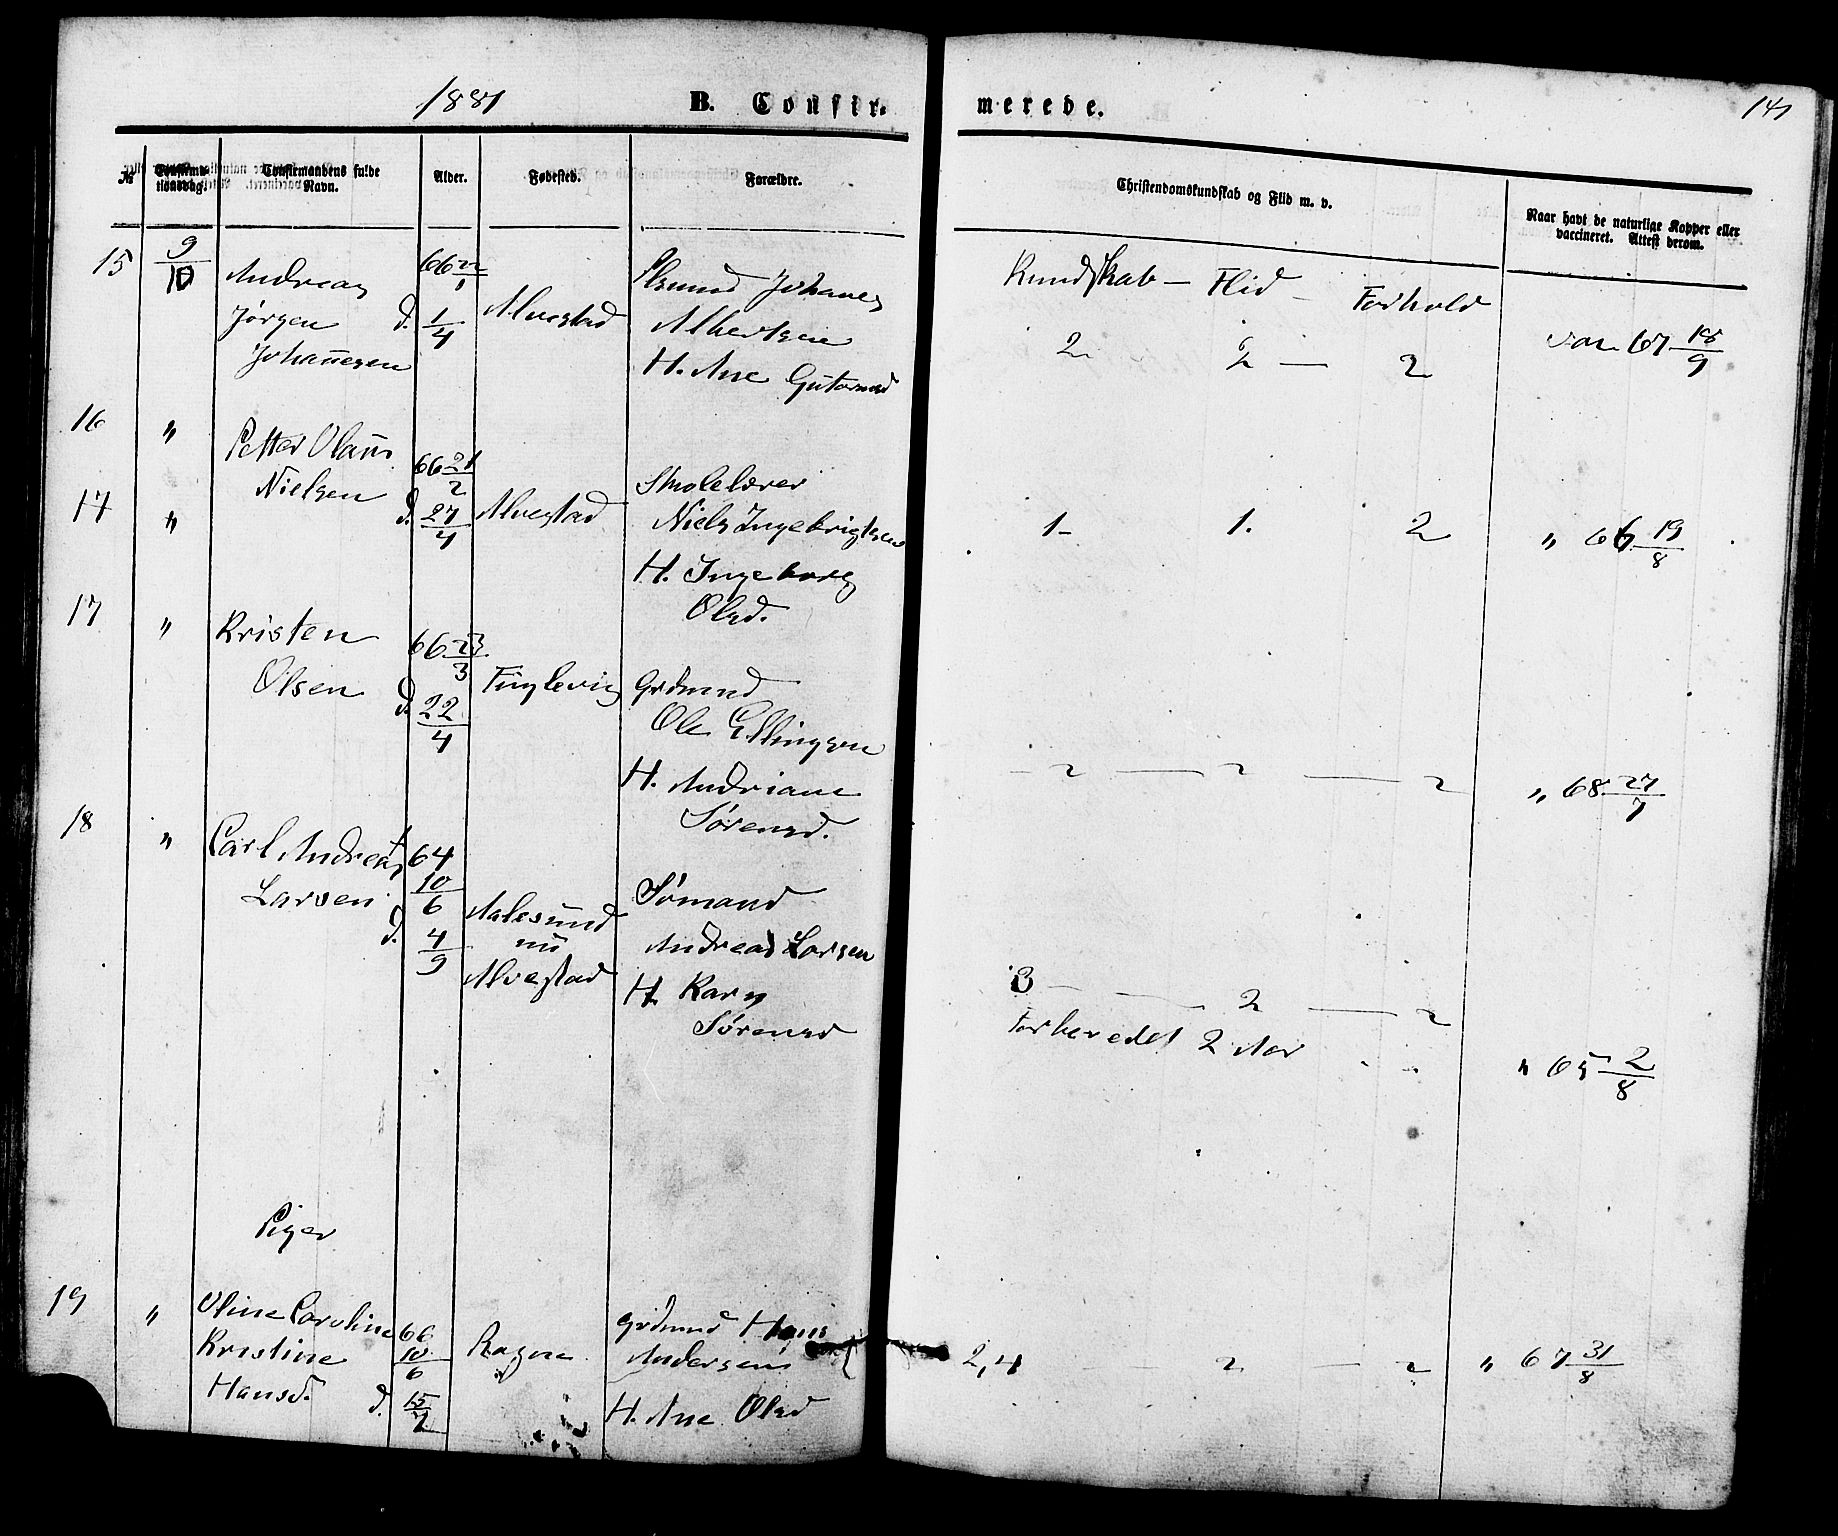 1881 B. Confir-
merede. 141
№ Confirma-
tionsdag. Confirmandens fulde
Navn. Alder. Fødested. Forældre.
Christendomskundskab og Flid m. v.
Naar havt de naturlige Kopper eller
vaccineret. Attest derom.
15 9/10 Andreas 66 22/1 Johanes
Jørgen d. 1/4 Alvestad Albertsen
Johannesen H. Ane Gutormsd
Kundskab – Flid – Forhold
2 2 – 2 vac. 67 18/9
16 " Petter Olaus 66 21/2 Skolelærer
Nielsen d. 27/4 Alvestad Niels Ingebrigtsen
17 " H. Ingeborg
Olsd.
1 – 1. 2 " 66 19/8
17 " Kristen 66 23/3
Olsen d. 22/4 Fuglevig Grdmand
Ole Ellingsen
H. Andriane
Sørensd.
– 2 – 2 – 2 " 68 27/7
18 " Carl Andreas 64
Larsen 10/6 Sømand
d. 4/9 Aalesund
nu Andreas Larsen
Alvestad H. Karn
Sørensd
3 – 2 – 2
Forberedet 2 Aar " 65 2/8
Piger
19 " Oline Caroline 66 Grdmand Hans
Kristine 10/6 Ragne Andersen
Hansd. d. 15/7 H. Ane Olsd
2,4 – 2 – 2 " 67 31/8